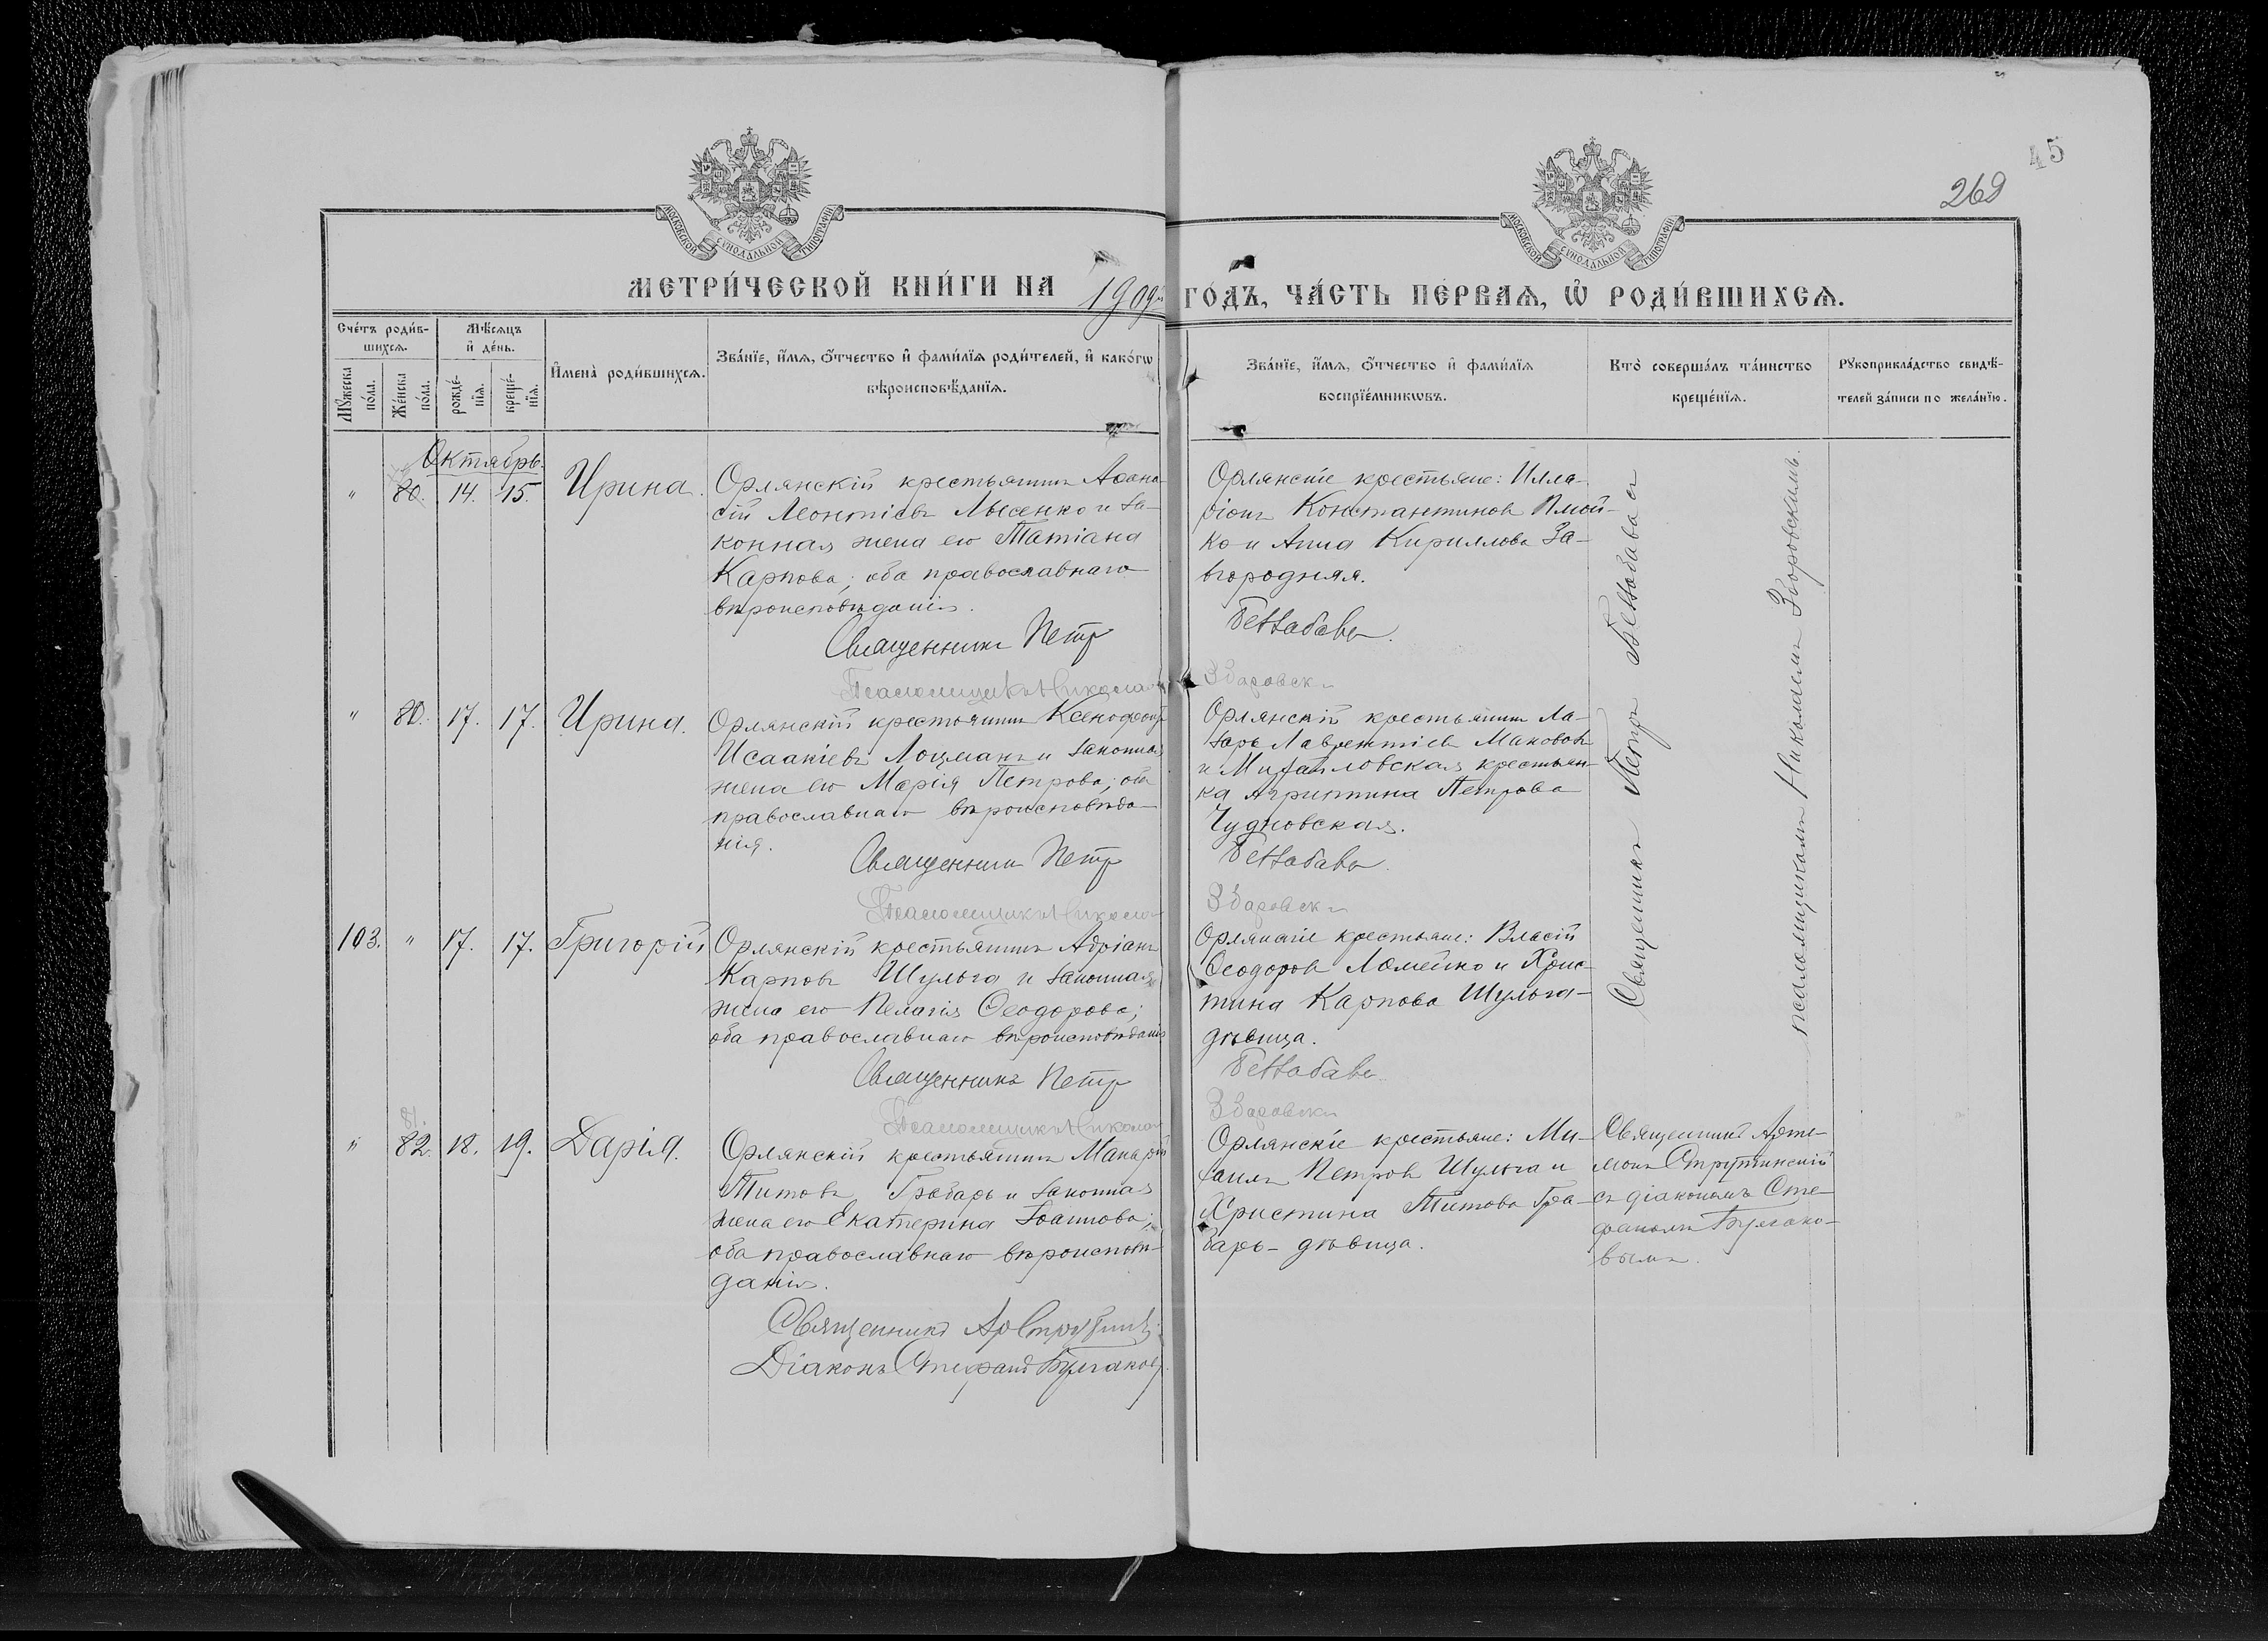 45
269
МОСКОВСКОЙ СѴНОДАЛЬНОЙ ТИПОГРАФІИ
МОСКОВСКОЙ СѴНОДАЛЬНОЙ ТИПОГРАФІИ
МЕТРИ́ЧЕСКОЙ КНИ́ГИ НА 1909й ГО́ДЪ, ЧА́СТЬ ПЕ́РВАѦ, Ѡ҆ РОДИ́ВШИХСѦ.
Сче́тъ роди́в-
шихсѧ.
Мꙋ́жеска по́ла.
Же́нска по́ла.
Мѣ́сѧцъ
и҆ де́нь.
рожде́-
нїѧ.
креще́-
нїѧ.
И҆мена̀ роди́вшихсѧ.
Зва́нїе, и҆́мѧ, ѻ҆́тчество и҆ фами́лїѧ роди́телей, и҆ како́гѡ
вѣроисповѣ́данїѧ.
Зва́нїе, и҆́мѧ, ѻ҆́тчество и҆ фами́лїѧ
воспрїе́мникѡвъ.
Кто̀ соверша́лъ та́инство
креще́нїѧ.
Рꙋкоприкла́дство свидѣ́-
телей за́писи по жела́нїю.
Октябрь.
" 80. 14. 15. Ирина.
Орлянскій крестьянинъ Аѳана-
сій Леонтіевъ Лысенко и за-
конная жена его Татіана
Карпова; оба православнаго
вѣроисповѣданія.
Священникъ Петръ
Псаломщикъ Николай
Орлянскіе крестьяне: Илла-
ріонъ Константиновъ
ко и Анна Кириллова За-
вгородняя.
Беззабава.
Зборовскі
" 80. 17. 17. Ирина.
Орлянскій крестьянинъ Ксенофонтъ
Исаакіевъ Лоцманъ и законная
жена его Марія Петрова; оба
православнаго вѣроисповѣда-
нія.
Священникъ Петръ
Псаломщикъ Николай
Орлянскій крестьянинъ Ла-
зарь Лаврентіевъ Маковозъ
и Михайловская крестьян-
ка Агриппина Петрова
Чудновская.
Беззабава.
Зборовскі
103. " 17. 17. Григорій
Орлянскій крестьянинъ Адріанъ
Карповъ Шульга и законная
жена его Пелагія Ѳеодорова;
оба православнаго вѣроисповѣданія
Священникъ Петръ
Псаломщикъ Николай
Орлянскіе крестьяне: Власій
Ѳеодоровъ Ломейко и Хрис-
тина Карпова Шульга-
дѣвица.
Беззабава
Зборовскі
Священникъ Петръ Беззабава съ
псаломщикомъ Николаемъ Зборовскимъ.
81.
" 82. 18. 19. Дарія.
Орлянскій крестьянинъ Макарій
Титовъ Грабарь и законная
жена его Екатерина Іоаннова;
оба православнаго вѣроисповѣ-
данія.
Священникъ Ар Струтинскі
Діаконъ Стефанъ Булгаковъ
Орлянскіе крестьяне: Ми-
хаилъ Петровъ Шульга и
Христина Титова Гра-
барь - дѣвица.
Священникъ Арте-
монъ Струтинскій
съ діакономъ Сте-
фаномъ Булгако-
вымъ.